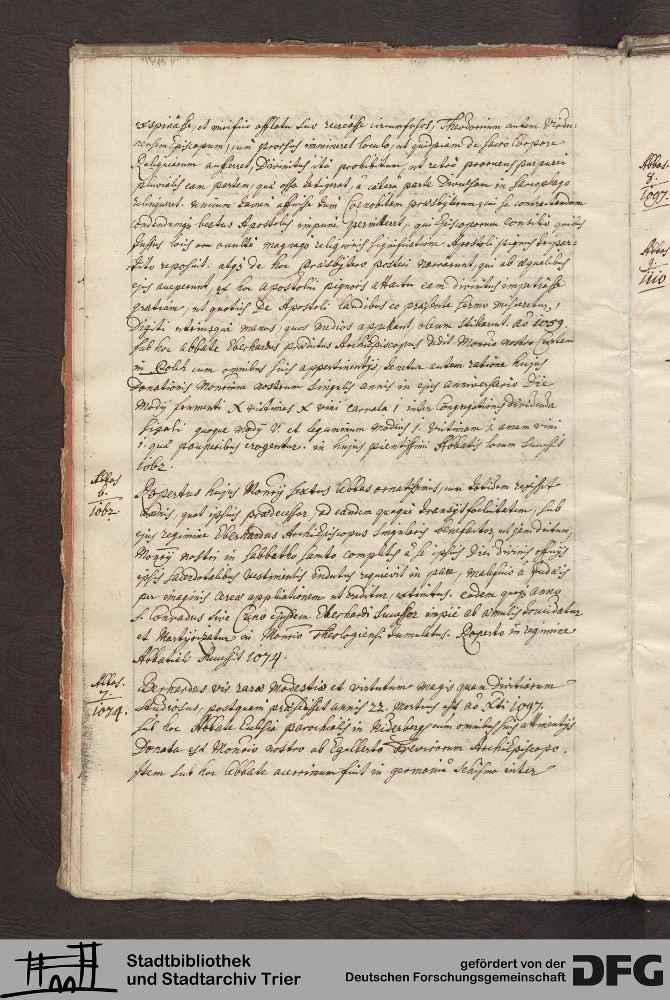 exspirâsse, et mirifico afflatu suo recreâsse circumfusos, Theodoricum autem Virdu-
nensem Episcopum, cum prorsus immineret loculo, ut quidpiam de sacro Corpore
Reliquiarum auferret, Divinitus ita prohibitum, ut retro pronuens purpurei
pluvialis eam partem, quâ ossa tetigerat, à cætera parte Divulsam in sarcophago
relinqueret. unicum tamen affuisse tum Coenobitam præsbyterum, cui se contrectandum
beatus Apostolus impune permitteret, qui Episcoporum consilio quibus
jussus loco eo magnaque religionis significatione Apostoli pignus tripar-
tito reposuit. atque de hoc Præsbytero posteri narrârunt, qui ab æqualibus
ejus acceperunt, ex hoc Apostolici pignoris attactu eam divinitus impetrâsse
gratiam, ut quoties de Apostoli laudibus eo præsente sermo misceretur,
Digiti utriusque manus, quos medios appellant oleum stillarint. aō 1059.
sub hoc abbate Eberhardus præditus Archiepiscopus dedit Monrio nostro
in Polch cum omnibus suis appertinentijs, tenetur autem ratione hujus
Donationis Monrium nostrum singulis annis in ejus anniversario Die
Modij frumenti X victimas X vini carrata 1 inter Congregationis dividenda
Sigali quoque modij V. et leguminum modius 1. victimam 1. amam vini
1. quæ pauperibus erogentur. in hujus pientissimi Abbatis locum successit
1062.
Abbas
6.
1062.
Ropertus hujus Monrij sextus Abbas ornatissimus, cum totidem rexisset
annis, quot ipsius prædecessor, ad eandem quoque transijt foelicitatem, sub
ejus regimine Eberhardus Archiepiscopus singularis benefactor, et jam
Monrij nostri in sabbatho sancto completis à se ipsius Diei divinis officijs
ipsis sacerdotalibus vestimentis indutus requievit in pace, maleficio à Judæis
per imaginis cereæ appliationem ut creditur, extinctus. eodem quoque anno
S. Conradus sive Cuno ejusdem Eberhardi successor impie ab æmulis trucidatur
et Martyrizatur in Monrio Theologiensi tumulatus. Roperto in regimine
Abbatiali successit 1074.
Abbas.
7.
1074.
Bernardus vir raræ modestiæ et virtutum magis quam divitiarum
studiosus, postquam præfuisset annis 22. mortuus est aō Xti 1097.
sub hoc Abbate Ecclesia parochialis in Niderberg cum omnibus suis attinentijs
Donata est Monrio nostro ab Egelberto Trevirorum Archiepiscopo.
Item sub hoc Abbate acerrimum fuit in germania schisma inter
Abbas
8.
1097.
Abbas
9.
1110
Stadtbibliothek
und Stadtarchiv Trier
gefördert von der
Deutschen Forschungsgemeinschaft
DFG